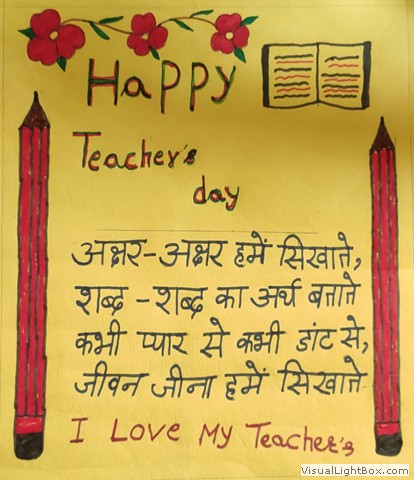 Happy
Teacher's
day
अक्षर-अक्षर हमें सिखाते,
शब्द-शब्द का अर्थ बताते
कभी प्यार से कभी डांट से,
जीवन जीना हमें सिखाते
I Love My Teacher's
VisualLightBox.com